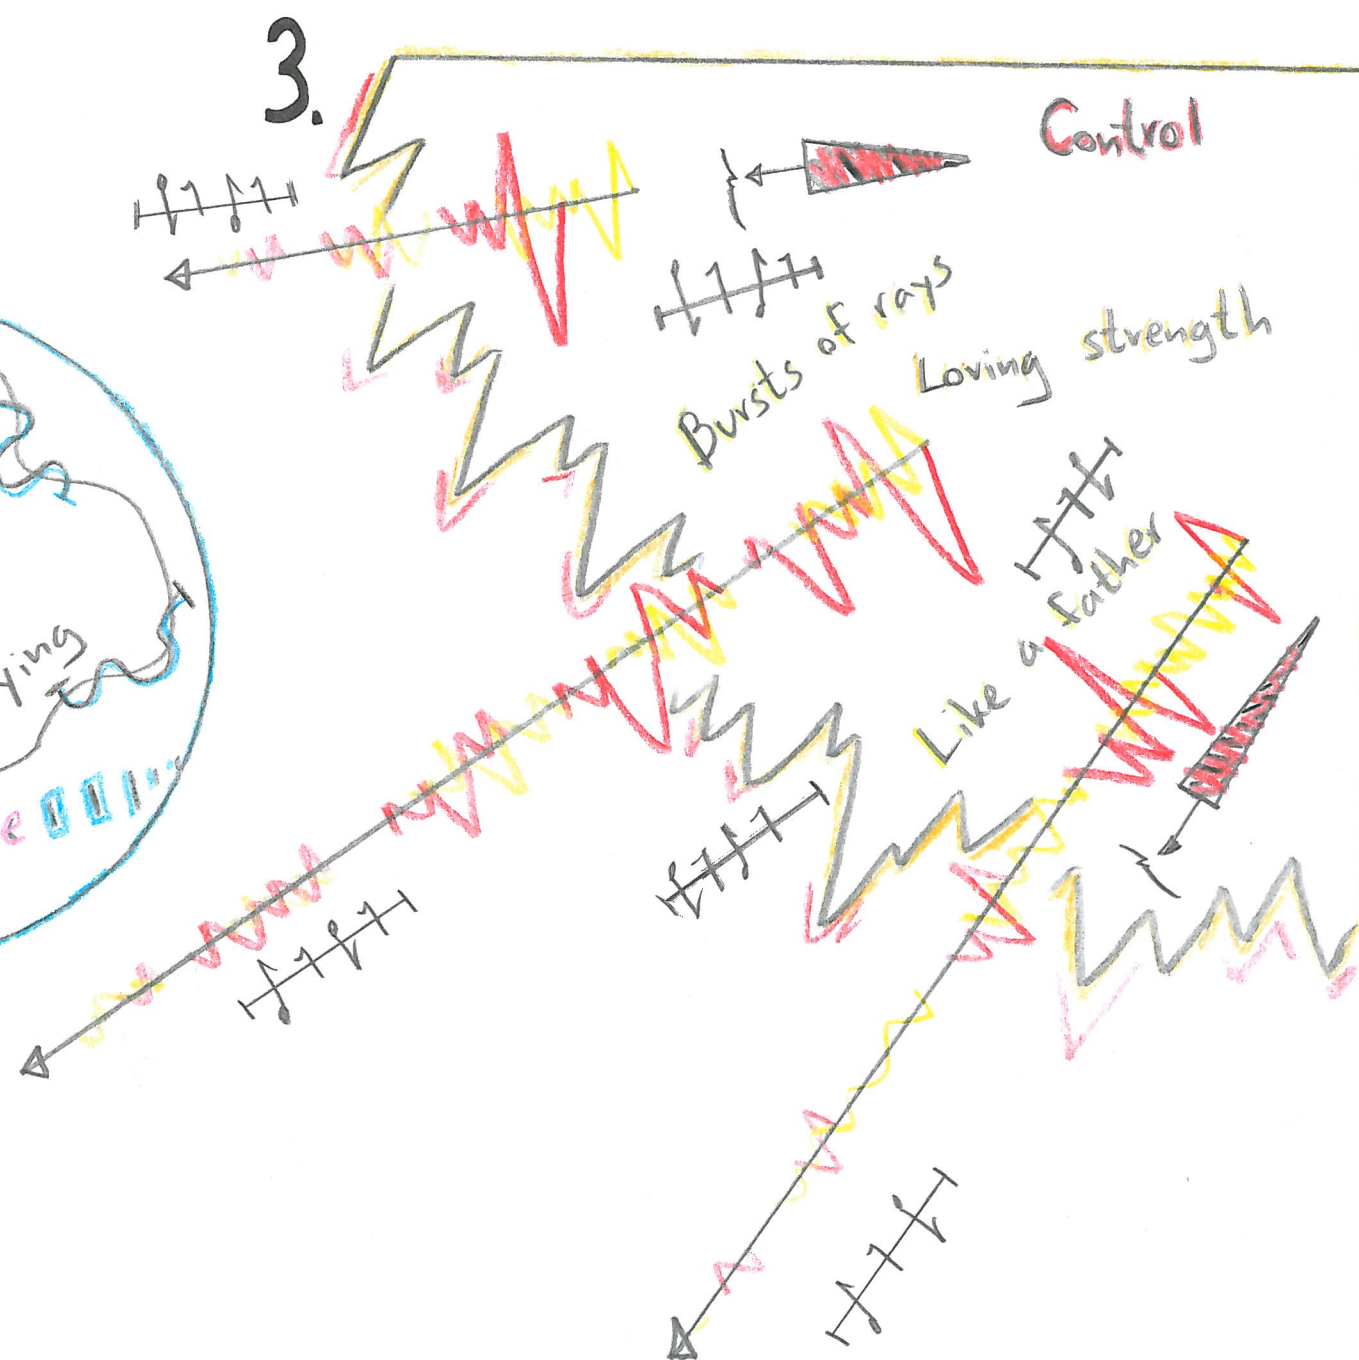 3.
Control
Bursts of rays
Loving strength
Like a father
ying
e